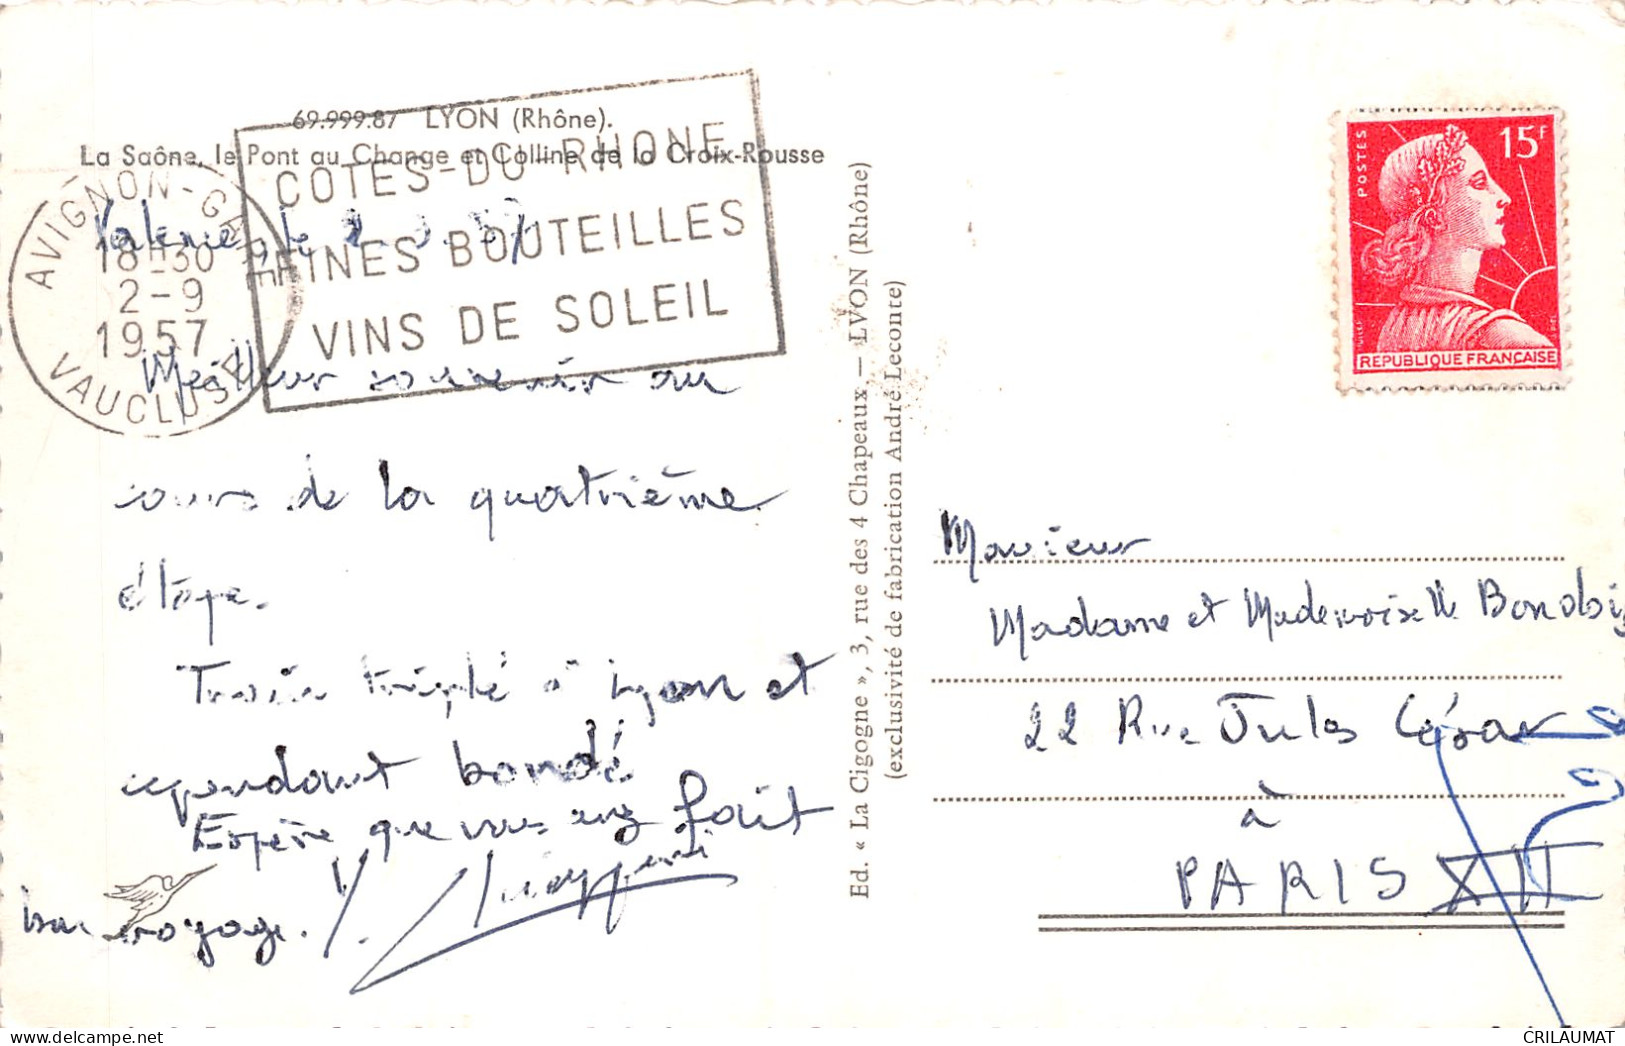 69.999.87 LYON (Rhône).
La Saône, le Pont au Change et Colline de la Croix-Rousse
AVIGNON-GARE
18H30
2-9
1957
VAUCLUSE
COTES-DU-RHONE
FINES BOUTEILLES
VINS DE SOLEIL
Valence, le 2
Meilleur souvenir au
cours de la quatrième
étape.
Train triplé à Lyon et
cependant bondé
Espère que vous avez fait
bon voyage.
Ed. « La Cigogne », 3, rue des 4 Chapeaux. — LYON (Rhône)
(exclusivité de fabrication André Leconte)
POSTES
15F
REPUBLIQUE FRANÇAISE
Monsieur
Madame et Mademoiselle
22 Rue Jules César
à
PARIS XII
CRILAUMAT